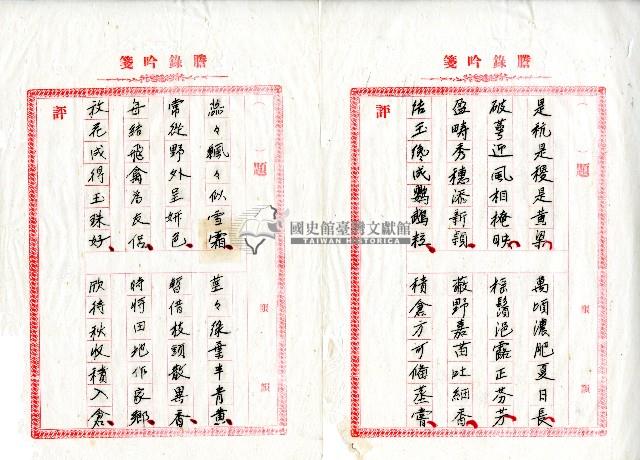 謄錄吟箋
題
是秔是稷是黃粱
萬頃濃肥夏日長
破萼迎風相掩映
鬚浥露正芬芳
盈疇秀穗添新穎
蔽野嘉苗吐細香
結玉成鸚鵡粒
積倉方可備蒸嘗
評
謄錄吟箋
題
蕊々飄々似雪霜
莖々綠葉半青黃
常從野外呈妍色
暫借枝頭散異香
每結飛禽為友侶
時將田地作家鄉
放花成得玉珠好
欣待秋收積入倉
評
國史館臺灣文獻館
TAIWAN HISTORICA